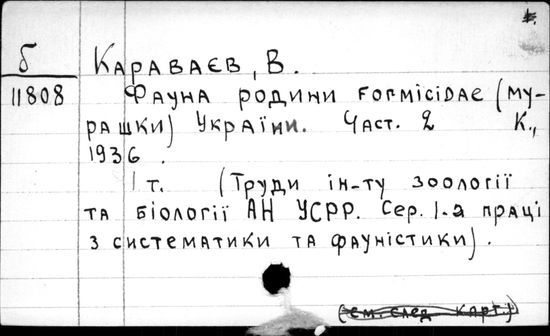 б
11808
Караваєв, В.
Фауна родини Formicidae (му-
рашки) України. Част. 2 К.,
1936.
1 т. (Труди ін-ту зоології
та біології АН УСРР. Сер. 1-а праці
з систематики та фауністики).
(см. след. карт.)